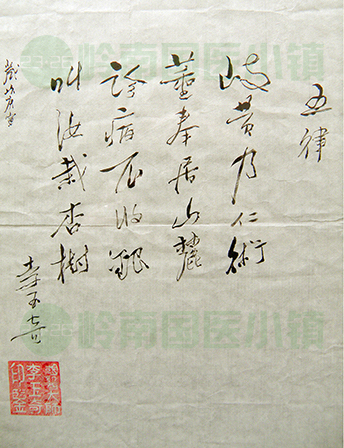 五律
岐黄乃仁術
董奉居山麓
診病不收銀
叫汝栽杏樹
李玉奇
岭南国医小镇
岭南国医小镇